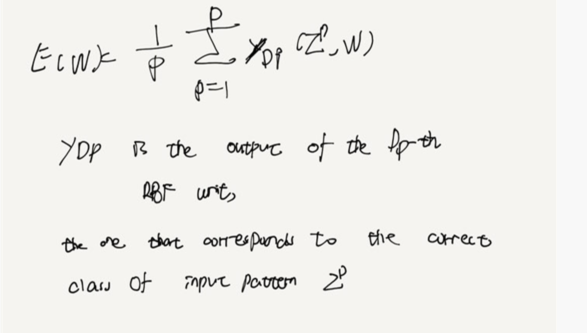 E(W) = 1/P ∑_{p=1}^{P} y_{Dp} (Z^p, W)
yDp is the output of the Dp-th
RBF unit,
the one that corresponds to the correct
class of input pattern Z^p